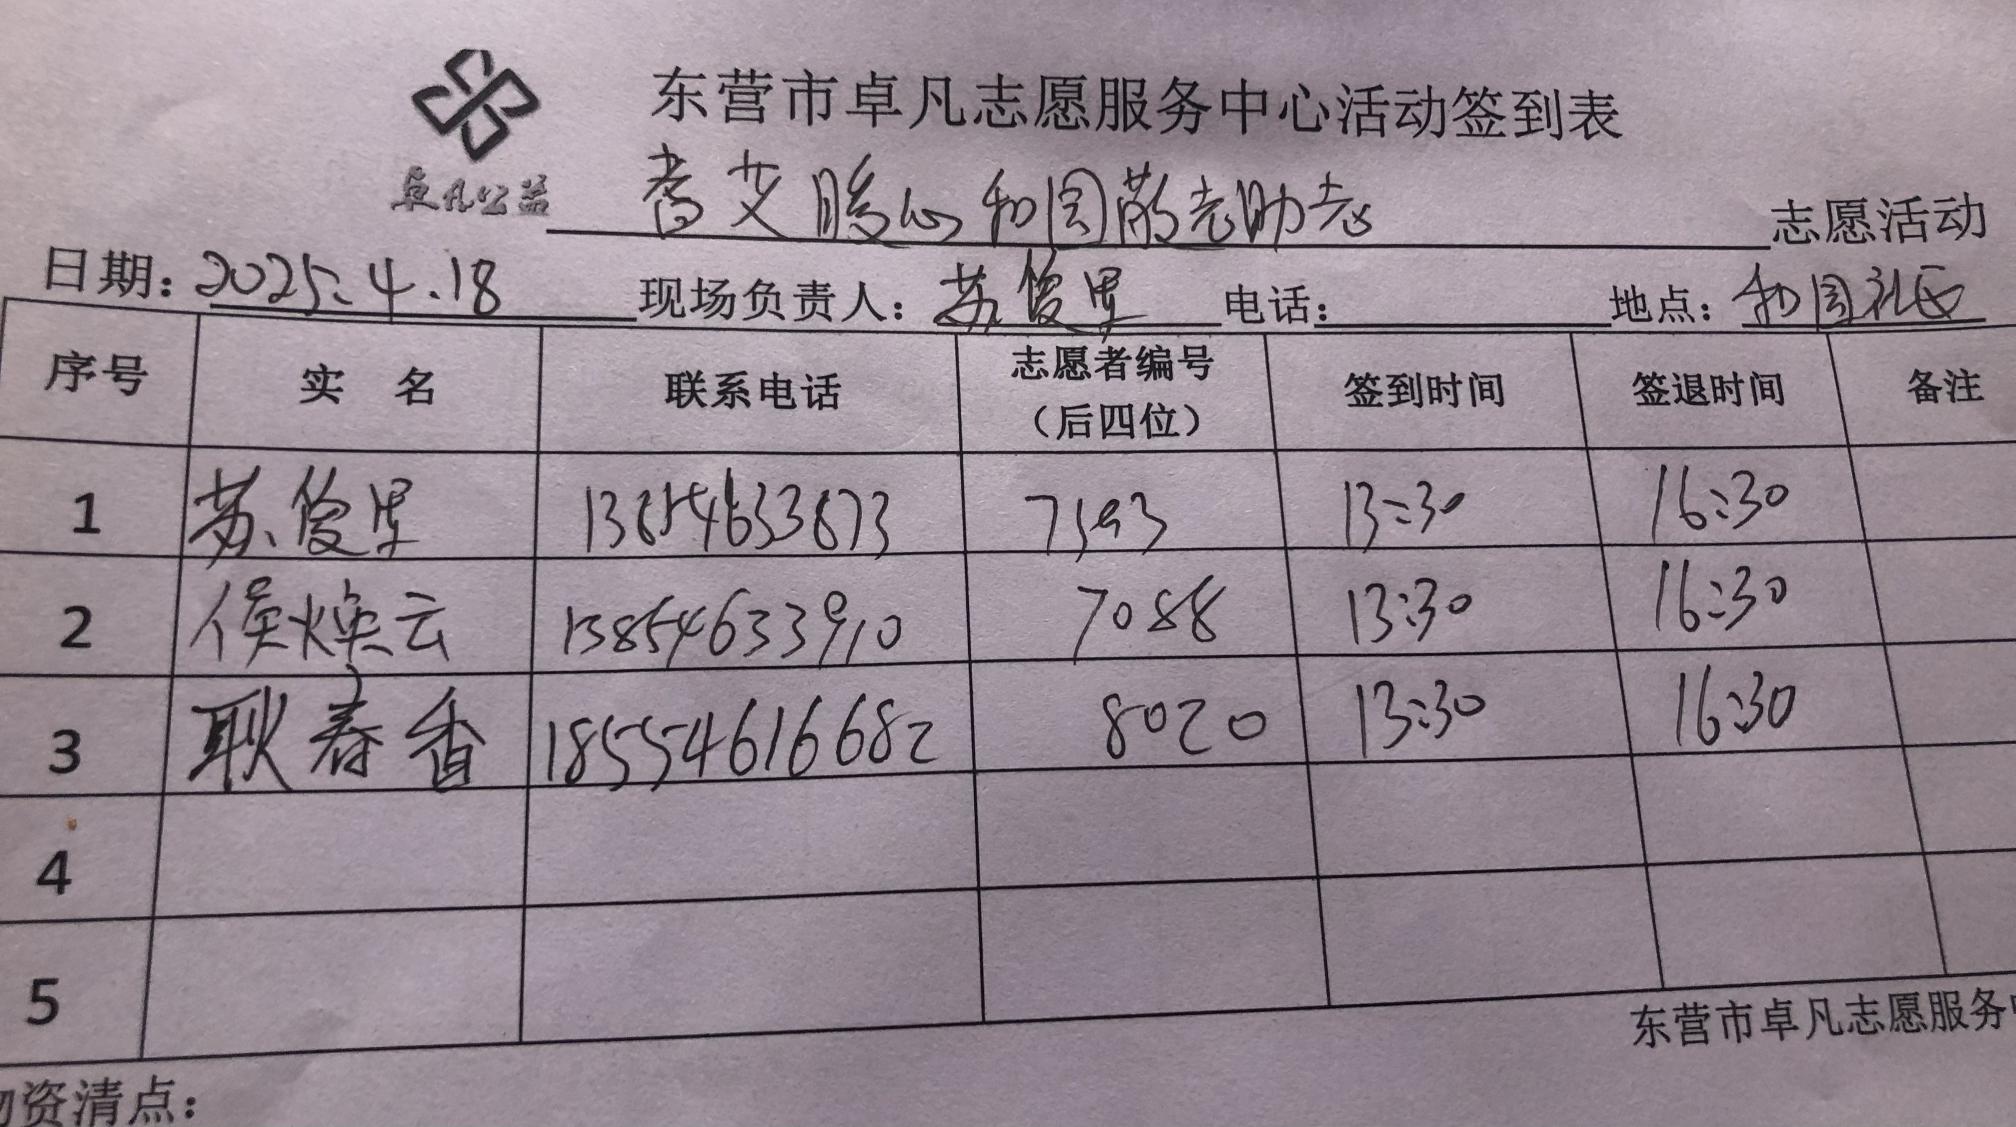 东营市卓凡志愿服务中心活动签到表
卓凡公益
耆艾暖心和园敬老助老 志愿活动
日期：2025.4.18 现场负责人：苏俊里 电话： 地点：和园社区
序号 实 名 联系电话 志愿者编号（后四位） 签到时间 签退时间 备注
1 苏俊里 13854633873 7593 13:30 16:30
2 侯焕云 13854633910 7088 13:30 16:30
3 耿春香 18554616682 8020 13:30 16:30
4
5
东营市卓凡志愿服务中
物资清点：